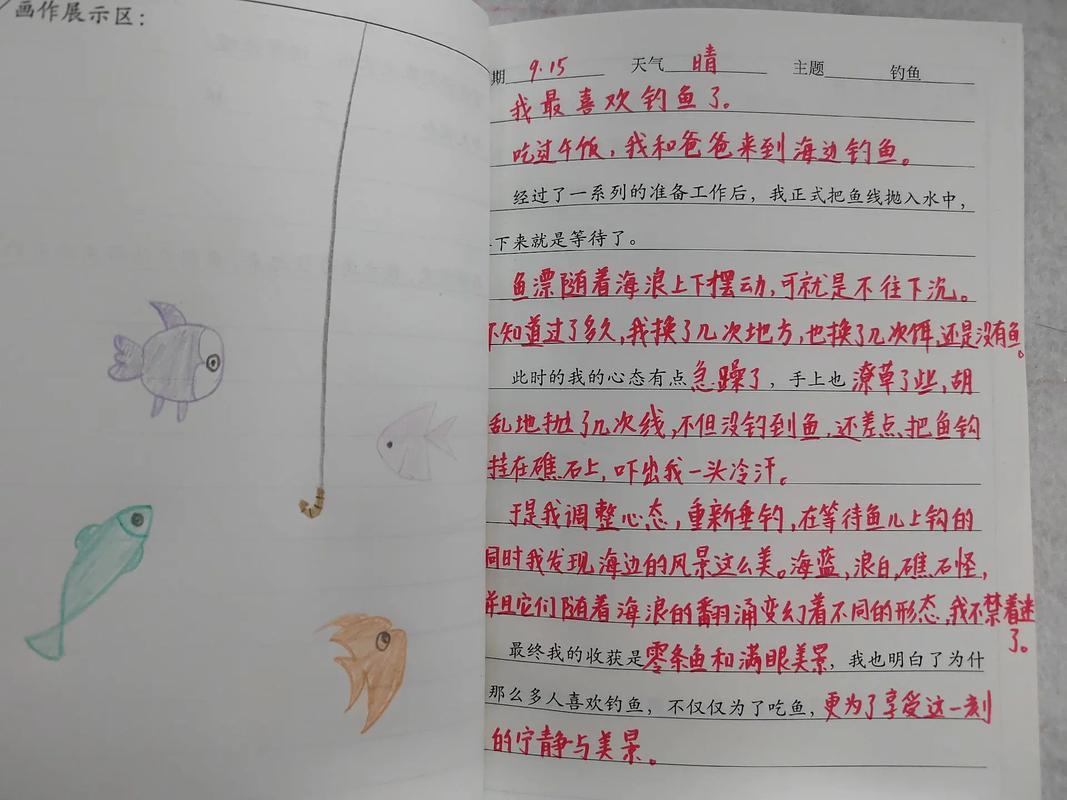 画作展示区：
期 9.15 天气 晴 主题 钓鱼
我最喜欢钓鱼了。
吃过午饭，我和爸爸来到海边钓鱼。
经过了一系列的准备工作后，我正式把鱼线抛入水中，
下来就是等待了。
鱼漂随着海浪上下摆动，可就是不往下沉。
不知道过了多久，我换了几次地方，也换了几次饵，还是没有鱼。
此时的我的心态有点急躁了，手上也潦草了些，胡
乱地抛了几次线，不但没钓到鱼，还差点把鱼钩
挂在礁石上，吓出我一头冷汗。
于是我调整心态，重新垂钓，在等待鱼儿上钩的
同时我发现海边的风景这么美。海蓝，浪白，礁石怪，
并且它们随着海浪的翻涌变幻着不同的形态，我不禁着迷
了。
最终我的收获是零条鱼和满眼美景，我也明白了为什
那么多人喜欢钓鱼，不仅仅为了吃鱼，更为了享受这一刻
的宁静与美景。